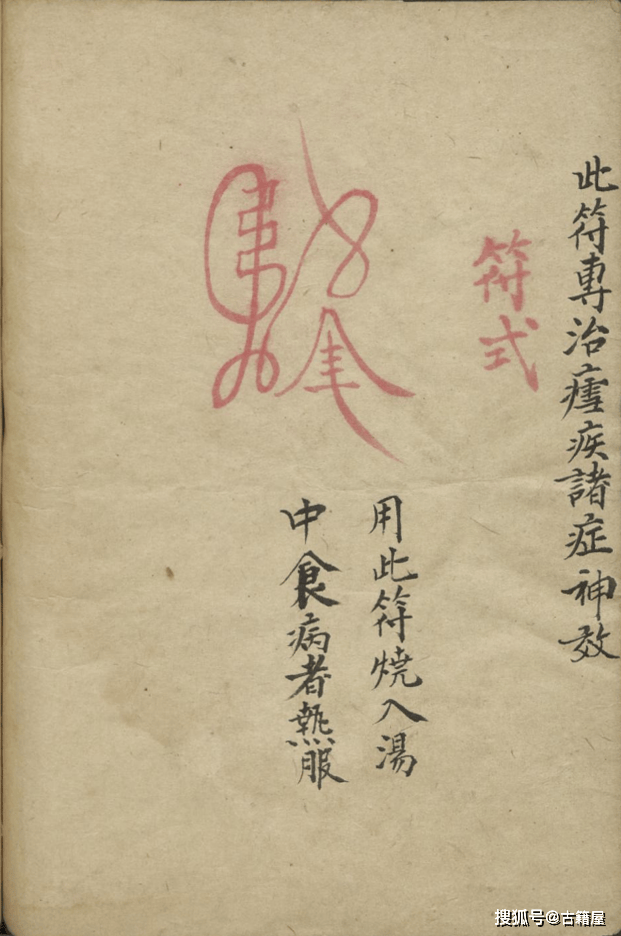 此符專治瘧疾諸症神效
符式
用此符燒入湯
中食病者熱服
搜狐号@古籍屋